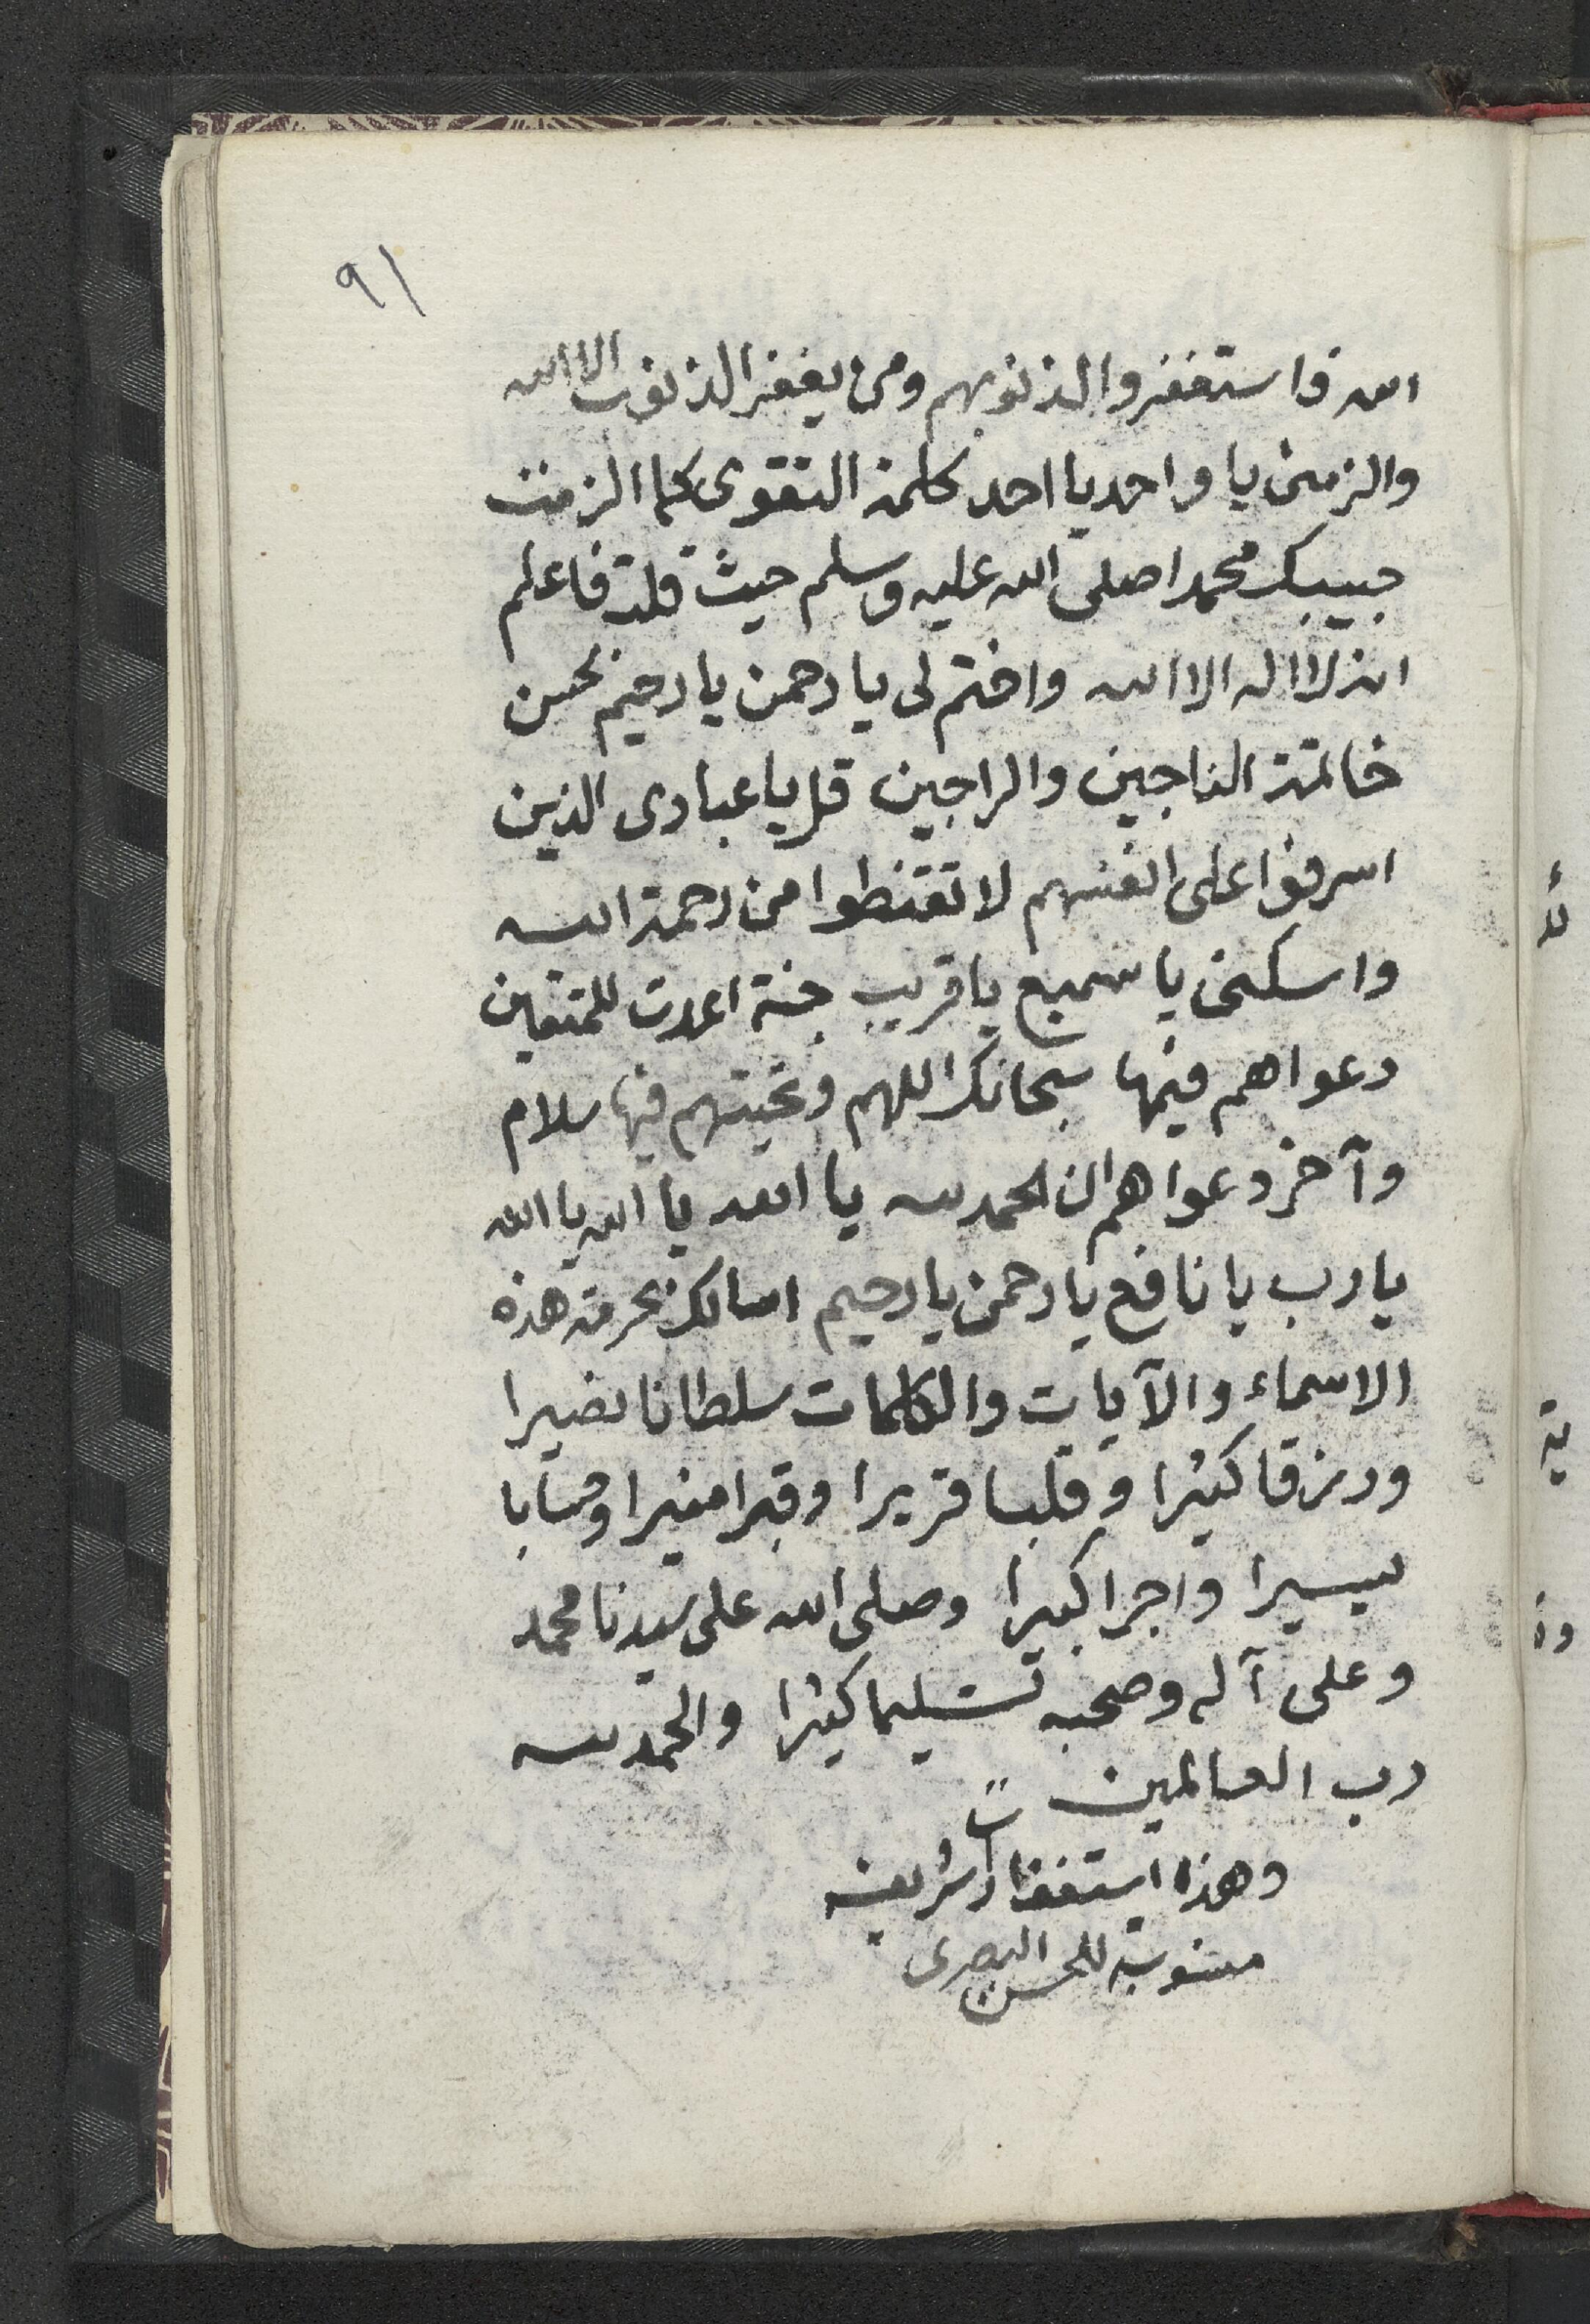 ٩١
الله فاستغفروا لذنوبهم ومن يغفر الذنوب الا الله
والزمنى يا واحد يا احد كلمة التقوى كما الزمت
حبيبك محمدا صلى الله عليه وسلم حيث قلت فاعلم
انه لا اله الا الله واختم لى يا رحمن يا رحيم بحسن
خاتمة الناجين والراجين قل يا عبادى الذين
اسرفوا على انفسهم لا تقنطوا من رحمة الله
واسكنى يا سميع يا قريب جنة اعدت للمتقين
دعواهم فيها سبحانك اللهم وتحيتهم فيها سلام
وآخر دعواهم ان الحمد لله يا الله يا الله يا الله
يا رب يا نافع يا رحمن يا رحيم اسالك بحرمة هذه
الاسماء والآيات والكلمات سلطانا نصيرا
ورزقا كثيرا وقلبا قريرا وقبرا منيرا وحسابا
يسيرا واجرا كبيرا وصلى الله على سيدنا محمد
وعلى آله وصحبه تسليما كثيرا والحمد لله
رب العالمين
وهذا استغفارات شريفة
منسوبة للحسن البصرى